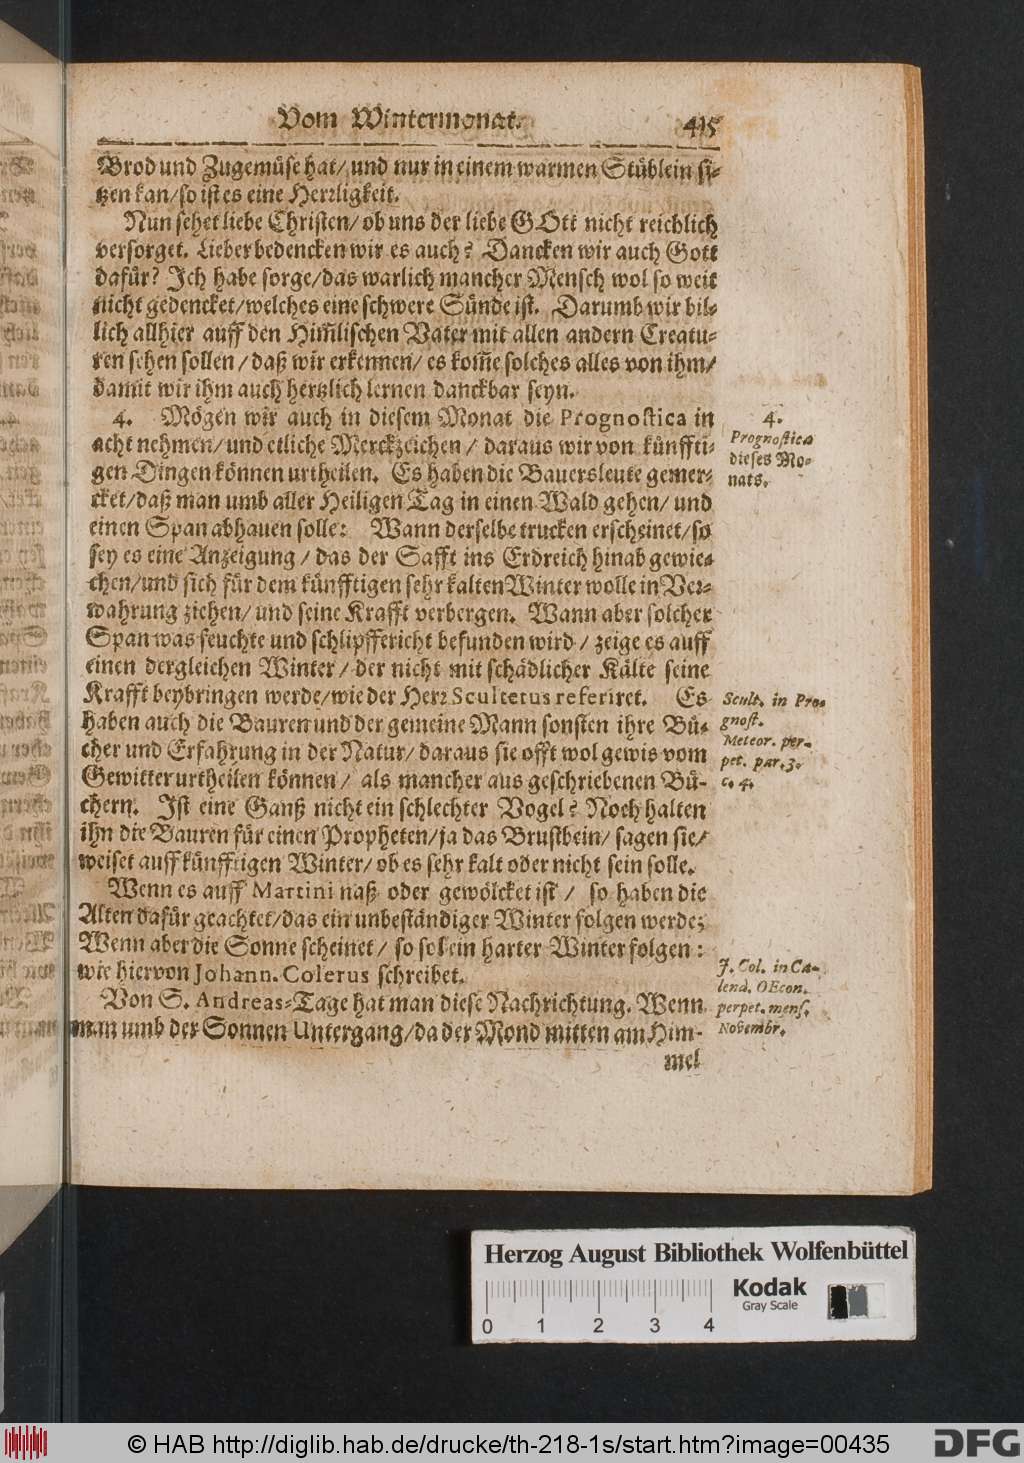 Vom Wintermonat. 415
Brod und Zugemüse hat/ und nur in einem warmen Stüblein si-
tzen kan/ so ist es eine Herrligkeit.
Nun sehet liebe Christen/ ob uns der liebe GOtt nicht reichlich
versorget. Lieber bedencken wir es auch? Dancken wir auch Gott
dafür? Ich habe sorge/ das warlich mancher Mensch wol so weit
nicht gedencket/ welches eine schwere Sünde ist. Darumb wir bil-
lich allhier auff den Him̃lischen Vater mit allen andern Creatu-
ren sehen sollen/ daß wir erkennen/ es kom̃e solches alles von ihm/
damit wir ihm auch hertzlich lernen danckbar seyn.
4. Mögen wir auch in diesem Monat die Prognostica in
acht nehmen/ und etliche Merckzeichen/ daraus wir von künffti-
gen Dingen können urtheilen. Es haben die Bauersleute gemer-
cket/ daß man umb aller Heiligen Tag in einen Wald gehen/ und
einen Span abhauen solle: Wann derselbe trucken erscheinet/ so
sey es eine Anzeigung/ das der Safft ins Erdreich hinab gewie-
chen/ und sich für dem künfftigen sehr kalten Winter wolle in Ver-
wahrung ziehen/ und seine Krafft verbergen. Wann aber solcher
Span was feuchte und schlipffericht befunden wird/ zeige es auff
einen dergleichen Winter/ der nicht mit schädlicher Kälte seine
Krafft beybringen werde/ wie der Herr Scultetus referiret. Es
haben auch die Bauren und der gemeine Mann sonsten ihre Bü-
cher und Erfahrung in der Natur/ daraus sie offt wol gewis vom
Gewitter urtheilen können/ als mancher aus geschriebenen Bü-
chern. Ist eine Ganß nicht ein schlechter Vogel? Noch halten
ihn die Bauren für einen Propheten/ ja das Brustbein/ sagen sie/
weiset auff künfftigen Winter/ ob es sehr kalt oder nicht sein solle.
Wenn es auff Martini naß oder gewölcket ist/ so haben die
Alten dafür geachtet/ das ein unbeständiger Winter folgen werde;
Wenn aber die Sonne scheinet/ so sol ein harter Winter folgen:
wie hiervon Johann. Colerus schreibet.
Von S. Andreas-Tage hat man diese Nachrichtung. Wenn
man umb der Sonnen Untergang/ da der Mond mitten am Him-
mel
4.
Prognostica
dieses Mo-
nats.
Scult. in Pro-
gnost.
Meteor. per-
pet. par. 3.
c. 4.
J. Col. in Ca-
lend. OEcon.
perpet. mens.
Novembr.
Herzog August Bibliothek Wolfenbüttel
Kodak
Gray Scale
0 1 2 3 4
© HAB http://diglib.hab.de/drucke/th-218-1s/start.htm?image=00435
DFG